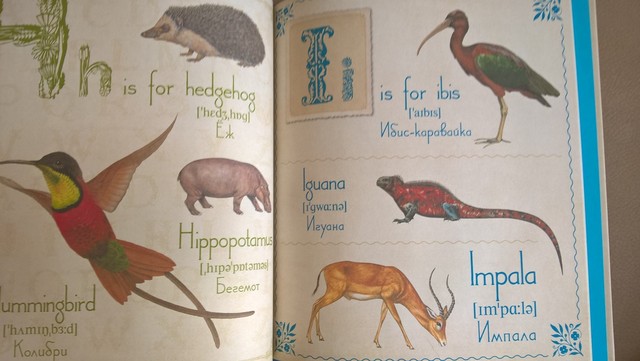 H h is for hedgehog
['hɛdʒ,hɒg]
Ёж
Hippopotamus
[,hɪpə'pɒtəməs]
Бегемот
ummingbird
['hʌmɪŋ,bɜ:d]
Колибри
I i is for ibis
['aɪbɪs]
Ибис-каравайка
Iguana
[ɪ'gwɑ:nə]
Игуана
Impala
[ɪm'pɑ:lə]
Импала